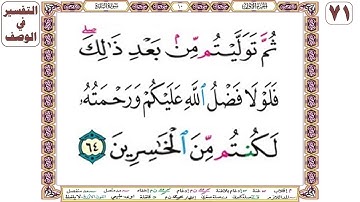 التفسير
في
الوصف
٧١
ثُمَّ تَوَلَّيْتُم مِّنۢ بَعْدِ ذَٰلِكَ ۖ
فَلَوْلَا فَضْلُ ٱللَّهِ عَلَيْكُمْ وَرَحْمَتُهُۥ
لَكُنتُم مِّنَ ٱلْخَٰسِرِينَ ٦٤